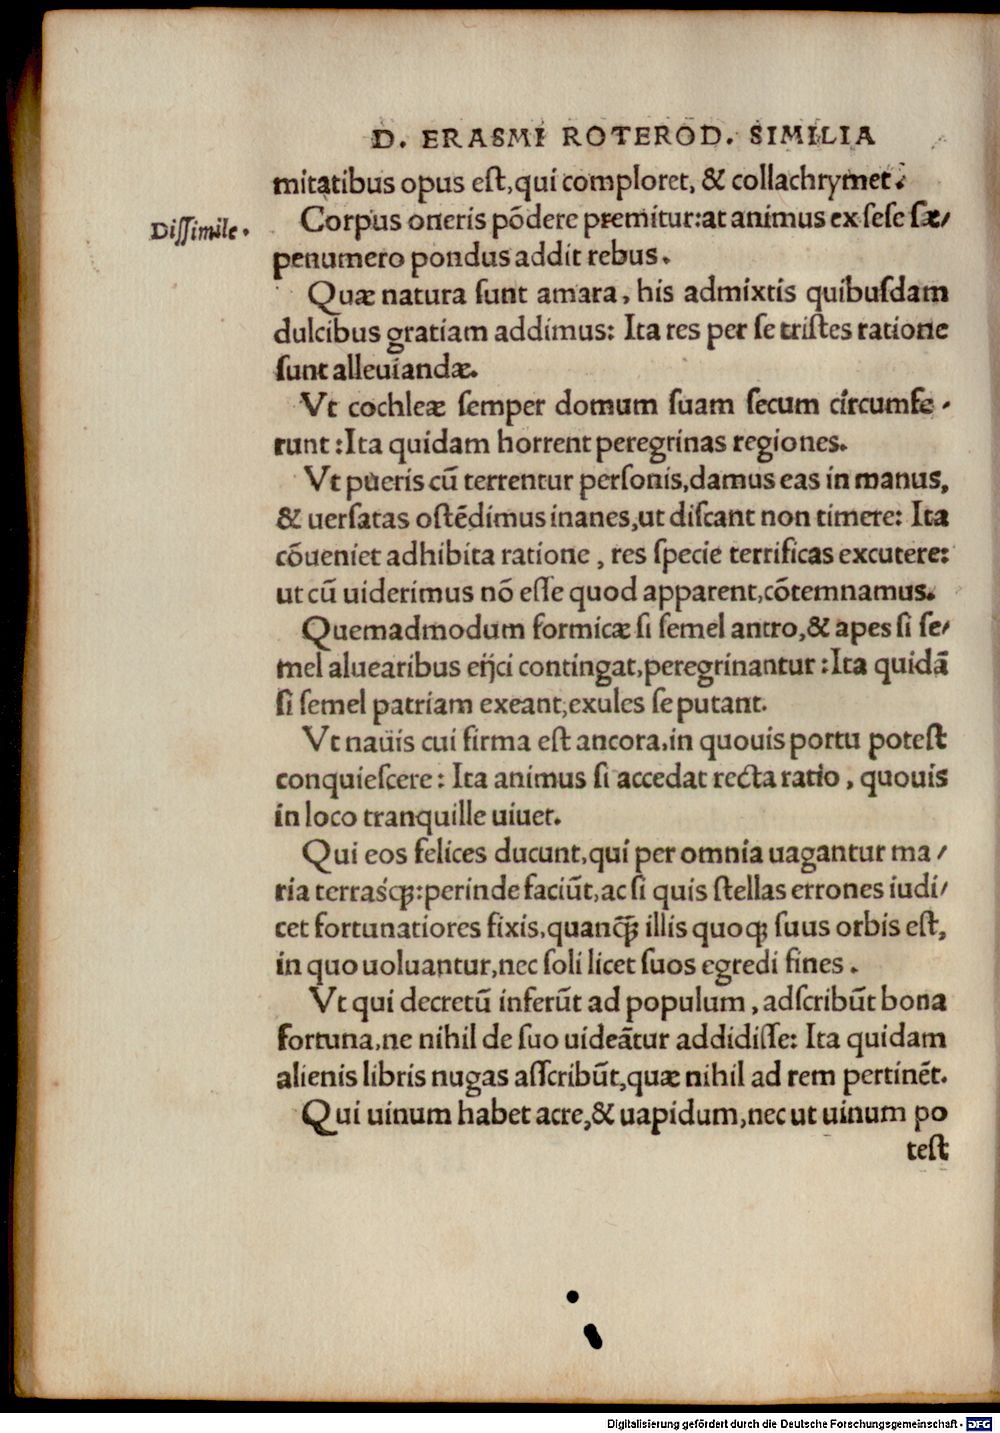 D. ERASMI ROTEROD. SIMILIA
mitatibus opus eſt,qui comploret, & collachrymet.
Diſſimile.
Corpus oneris põdere premitur:at animus ex ſeſe ſæ/
penumero pondus addit rebus.
Quæ natura ſunt amara, his admixtis quibuſdam
dulcibus gratiam addimus: Ita res per ſe triſtes ratione
ſunt alleuiandæ.
Vt cochleæ ſemper domum ſuam ſecum circumfe-
runt:Ita quidam horrent peregrinas regiones.
Vt pueris cũ terrentur perſonis,damus eas in manus,
& uerſatas oſtẽdimus inanes,ut diſcant non timere: Ita
cõueniet adhibita ratione, res ſpecie terrificas excutere:
ut cũ uiderimus nõ eſſe quod apparent,cõtemnamus.
Quemadmodum formicæ ſi ſemel antro,& apes ſi ſe/
mel aluearibus eijci contingat,peregrinantur:Ita quidã
ſi ſemel patriam exeant,exules ſe putant.
Vt nauis cui firma eſt ancora,in quouis portu poteſt
conquieſcere: Ita animus ſi accedat recta ratio, quouis
in loco tranquille uiuet.
Qui eos felices ducunt,qui per omnia uagantur ma/
ria terrasq;:perinde faciũt,ac ſi quis ſtellas errones iudi/
cet fortunatiores fixis,quanq̃ illis quoq; ſuus orbis eſt,
in quo uoluantur,nec ſoli licet ſuos egredi fines.
Vt qui decretũ inferũt ad populum, adſcribũt bona
fortuna,ne nihil de ſuo uideãtur addidiſſe: Ita quidam
alienis libris nugas aſſcribũt,quæ nihil ad rem pertinẽt.
Qui uinum habet acre,& uapidum,nec ut uinum po
teſt
Digitalisierung gefördert durch die Deutsche Forschungsgemeinschaft - DFG